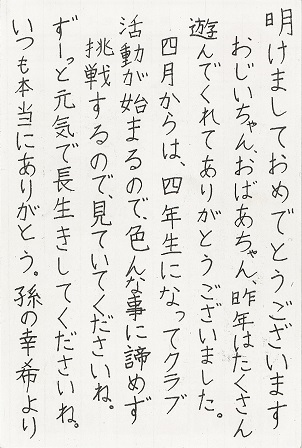 明けましておめでとうございます
おじいちゃん、おばあちゃん、昨年はたくさん
遊んでくれてありがとうございました。
四月からは、四年生になってクラブ
活動が始まるので、色んな事に諦めず
挑戦するので、見ていてくださいね。
ずーっと元気で長生きしてくださいね。
いつも本当にありがとう。孫の幸希より